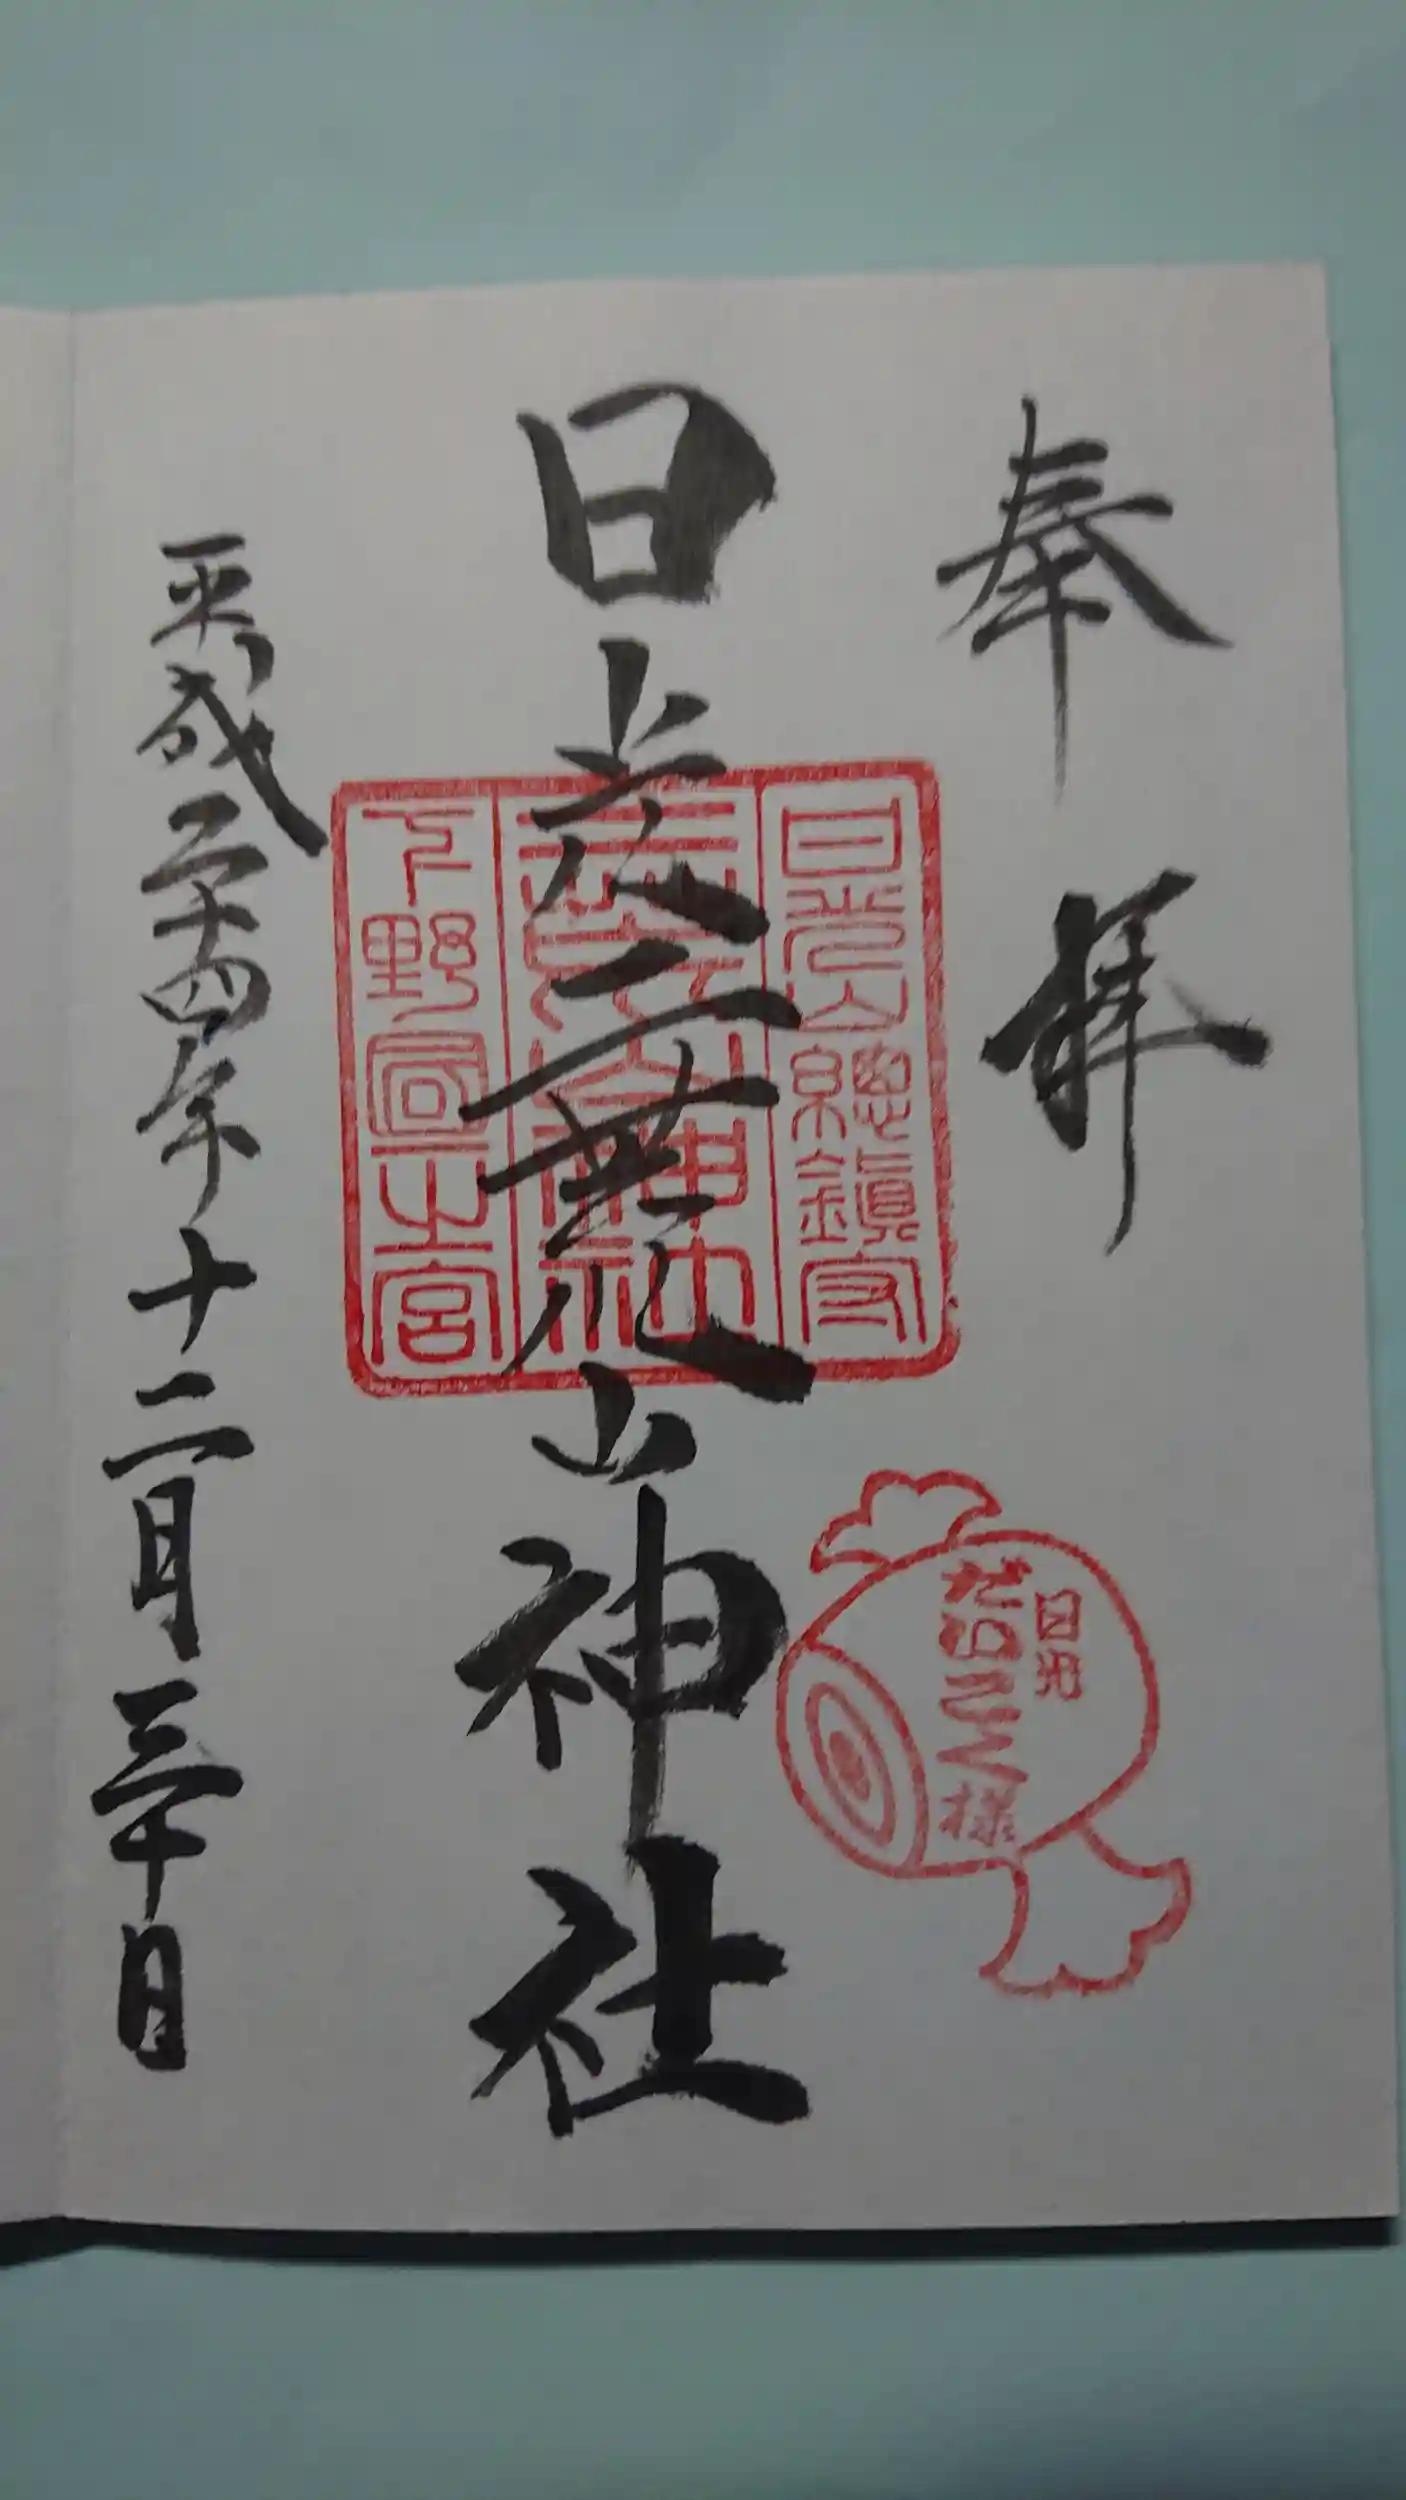 奉拝
日光二荒山神社
平成二十四年十二月三十日
日光山総鎮守
二荒山神社
下野国一之宮
日光
だいこく様